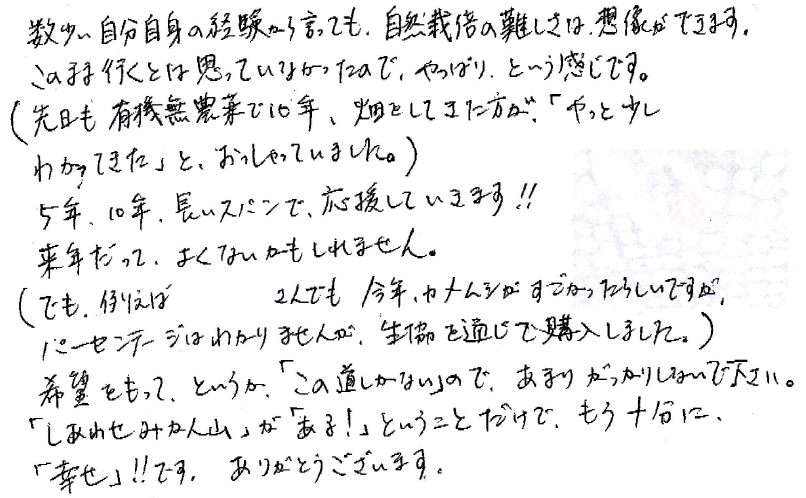 数少い自分自身の経験から言っても、自然栽培の難しさは、想像ができます。
このまま行くとは思っていなかったので、やっぱり、という感じです。
(先日も有機無農薬で10年、畑をしてきた方が、「やっと少し
わかってきた」と、おっしゃっていました。)
5年、10年、長いスパンで、応援していきます!!
来年だって、よくないかもしれません。
(でも、例えば さんでも 今年、カメムシがすごかったらしいですが、
パーセンテージはわかりませんが、生協を通じで購入しました。)
希望をもって、というか、「この道しかない」ので、あまりがっかりしないで下さい。
「しあわせみかん山」が「ある!」ということだけで、もう十分に、
「幸せ」!!です。 ありがとうございます。